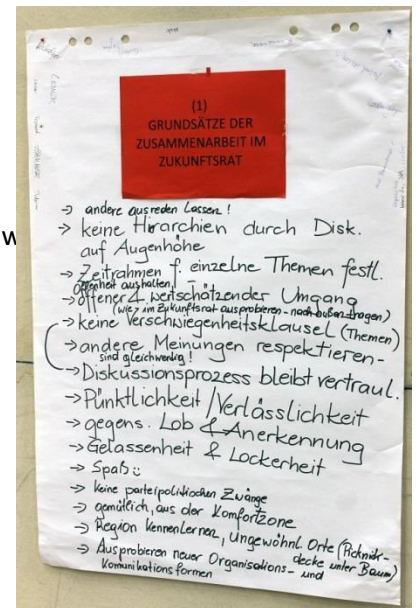 (1)
GRUNDSÄTZE DER
ZUSAMMENARBEIT IM
ZUKUNFTSRAT
→ andere ausreden lassen!
→ keine Hirarchien durch Disk.
auf Augenhöhe
→ Zeitrahmen f. einzelne Themen festl.
Offenheit aushalten!
→ offener & wertschätzender Umgang
(wie? im Zukunftsrat ausprobieren - nach außen tragen)
→ keine Verschwiegenheitsklausel (Themen)
→ andere Meinungen respektieren-
sind gleichwertig!
→ Diskussionsprozess bleibt vertraul.
→ Pünktlichkeit / Verlässlichkeit
→ gegens. Lob & Anerkennung
→ Gelassenheit & Lockerheit
→ Spaß ü
→ keine parteipolitischen Zwänge
→ gemütlich, aus der Komfortzone
→ Region kennenlernen, Ungewöhnl. Orte (Picknick-
decke unter Baum)
→ Ausprobieren neuer Organisations- und
Komunikationsformen
w